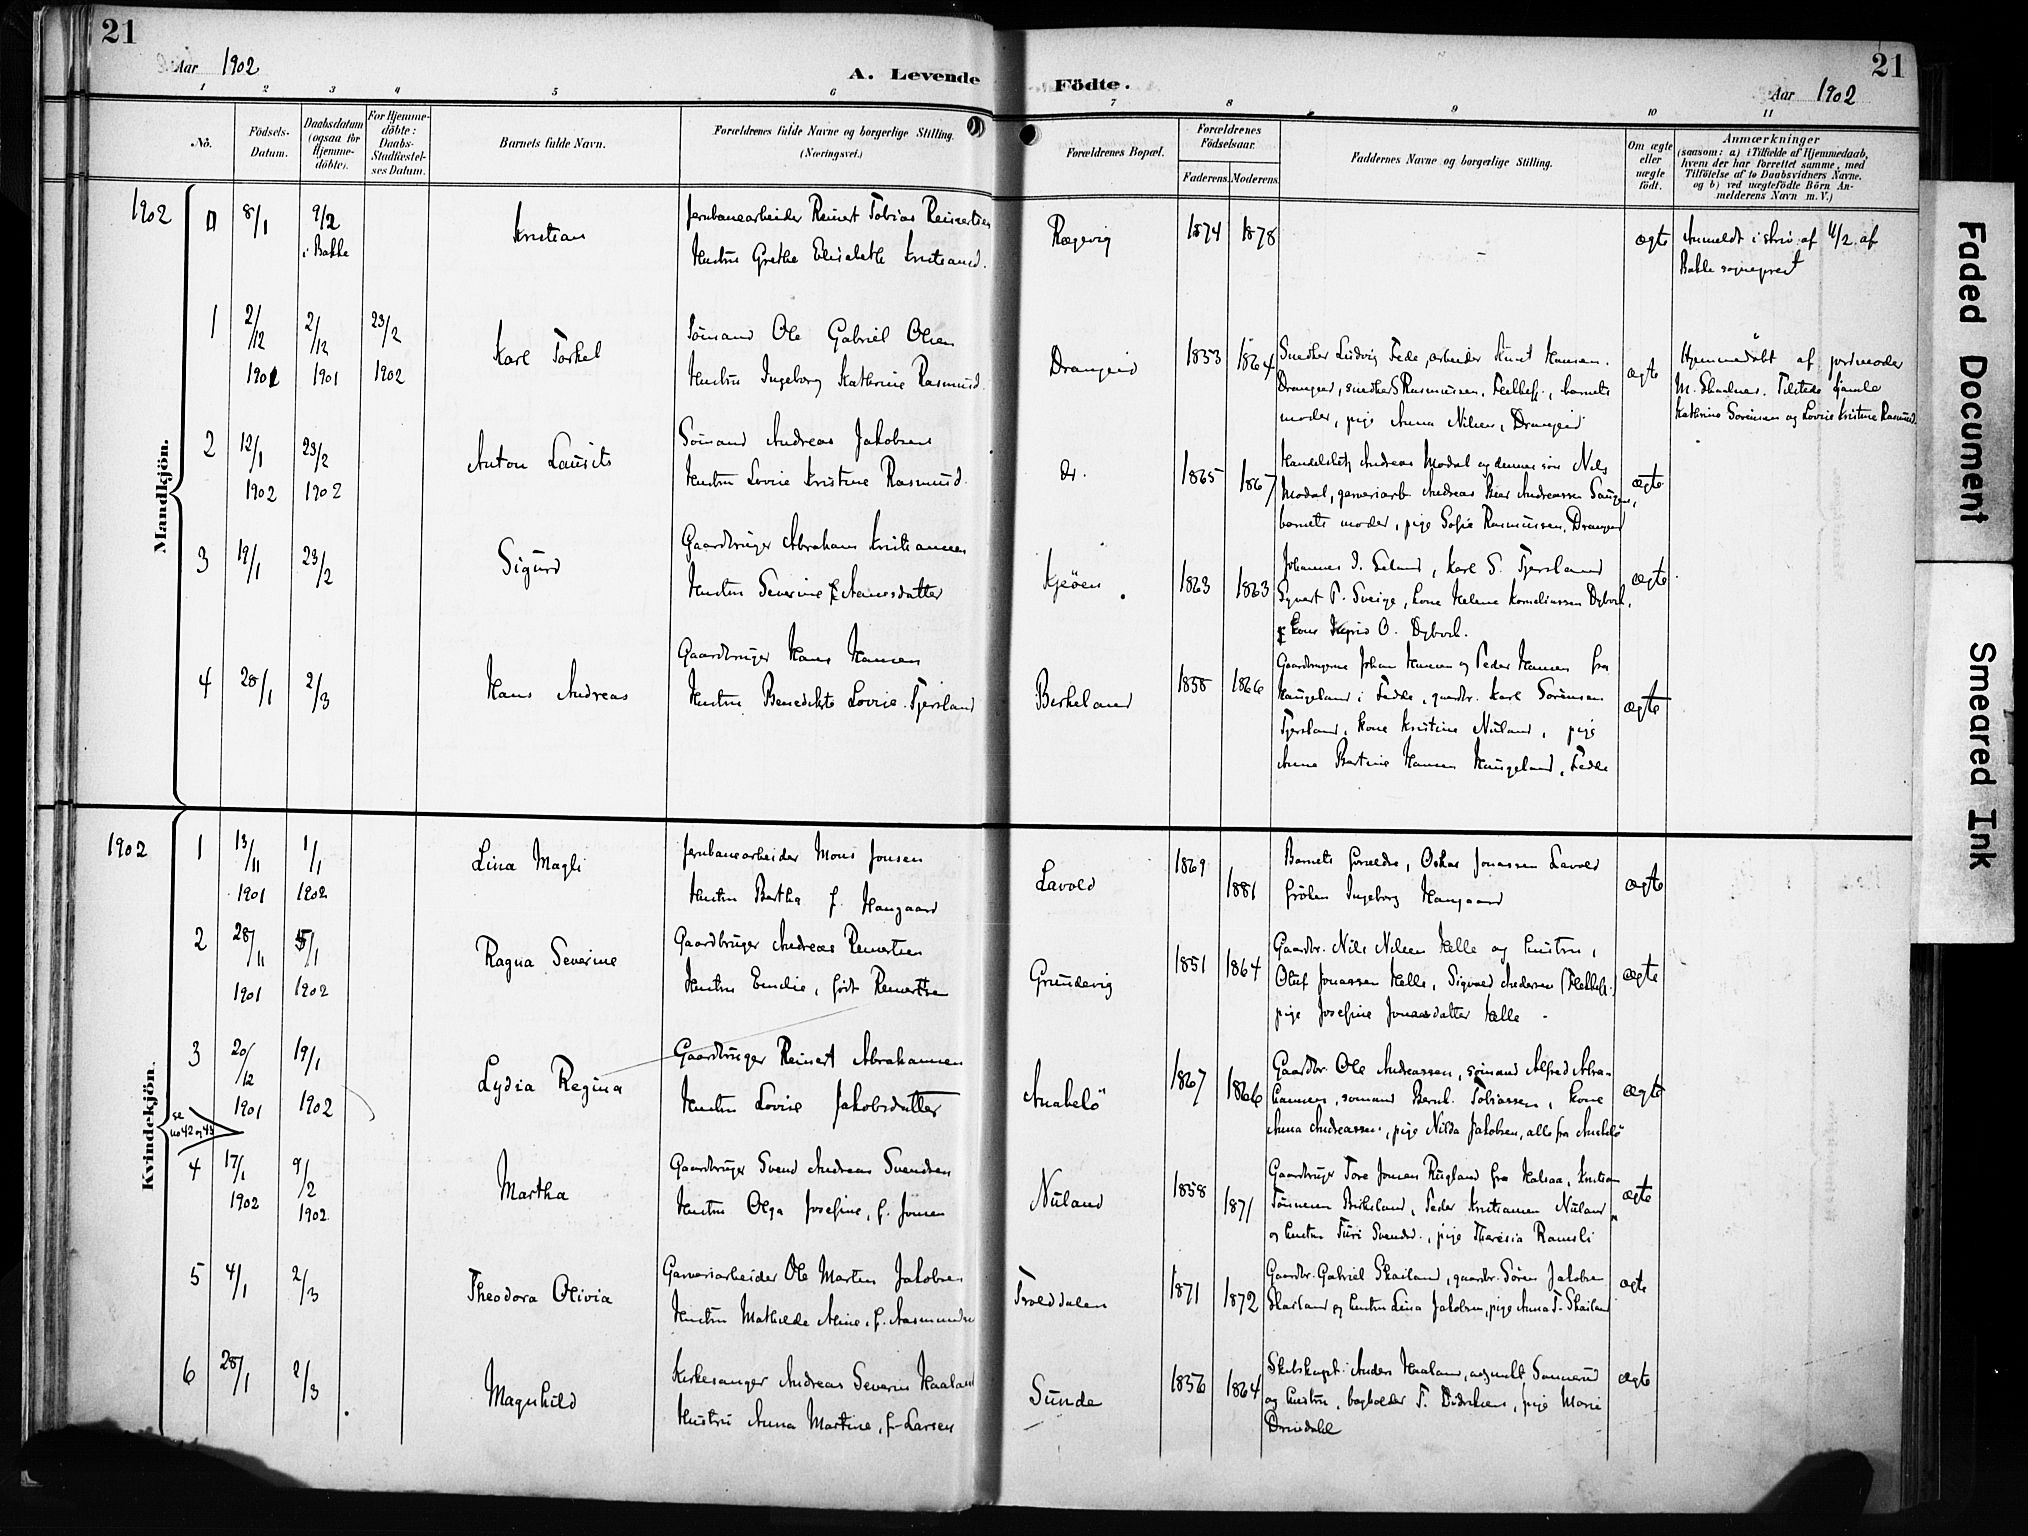 21
Aar 1902
A. Levende
Födte.
21
Aar 1902
1 2 3 4 5 6 7 8 9 10 11
No.
Födsels-
Datum.
Daabsdatum
(ogsaa for
Hjemme-
döbte).
For Hjemme-
döbte:
Daabs-
Stadfæstel-
ses Datum.
Barnets fulde Navn.
Forældrenes fulde Navne og borgerlige Stilling.
(Næringsvei.)
Forældrenes Bopæl.
Forældrenes
Födselsaar.
Faderens. Moderens.
Faddernes Navne og borgerlige Stilling.
Om ægte
eller
uægte
födt.
Anmærkninger
(saasom: a) i Tilfælde af Hjemmedaab,
hvem der har forrettet samme, med
Tilföielse af to Daabsvidners Navne.
og b) ved uægtefödte Börn An-
melderens Navn m. V.)
Mandkjön.
1902 0 8/1 9/2 Kristian Jernbanearbeider Reinert Tobias Reinertsen Rægevig 1874 1878 - ægte Anmeldt i skriv. af 11/2 af
i Bakke Hustru Grethe Elisabeth Kristiansd. Bakke sogneprest
1 2/12 2/12 23/2 Karl Torkel Sömand Ole Gabriel Olsen Drangeid 1833 1864 Snedker Ludvig Fede, arbeider Knut Hansen ægte Hjemmedöbt af jordmoder
1901 1901 1902 Hustru Ingeborg Kathrine Rasmusd. Drangeid, snedker S Rasmussen, Flekkefj., barnets M.
moder, pige Anna Nilsen, Drangeid Kathrine Sörensen og Lovise Kristine Rasmusd.
2 12/1 23/2 Anton Laurits Sömand Andreas Jakobsen Do. 1865 1867 Andreas Modal og dennes sön Nils ægte
1902 1902 Hustru Lovise Kristine Rasmusd. Modal, garveriarb. Andreas Andreassen
barnets moder, pige Sofie Rasmussen, Drangeid
3 19/1 23/2 Sigurd Gaardbruger Abraham Kristiansen Kjöen 1863 1863 Johannes I. Karl S. Tjersland ægte
Hustru Severine f. Syvert T. Sveige, kone Helene Korneliussen Dybvik,
kone O. Dybvik.
4 28/1 2/3 Hans Andreas Gaardbruger Hans Hansen Birkeland 1858 1866 Gaardbrugerne Johan Hansen og Peder Hansen fra ægte
Hustru Benedikte Lovise Tjersland Haugeland i Fedde, gaardbr. Karl Sörensen
Tjersland, kone Kristine Nuland, pige
Anna Bertine Hansen Haugeland, Fedde
Kvindekjön.
1902 1 13/11 1/1 Lina Magli Jernbanearbeider Mons Jonsen Lavold 1869 1881 Barnets forældre, Oskar Jonassen Lavold ægte
1901 1902 Hustru Bertha f. Haugaard fröken Ingeborg Haugaard
2 28/11 5/1 Ragna Severine Gaardbruger Andreas Reinertsen Grundevig 1851 1864 Gaardbr. Nils Nilsen Helle og hustru, ægte
1901 1902 Hustru Emilie, født Reinertsen Oluf Jonassen Helle, Sigvald Andersen (Flekkefj.)
pige Josefine Jonasdatter Helle -
3 20/12 19/1 Lydia Regina Gaardbruger Reinert Abrahamsen Anabelö 1867 1866 Gaardbr. Ole Andreassen, sömand Alfred Abra- ægte
1901 1902 Hustru Lovise Jakobsdatter hamsen, sömand Bernh. Tobiassen, kone
se Anna Andreassen, pige Nilda Jakobsen, alle fra Anabelö
no 42 og 43
4 17/1 9/2 Martha Gaardbruger Svend Andreas Svendsen Nuland 1858 1871 Gaardbruger Tore Jonsen Rugland fra Halsaa, Kristian ægte
1902 1902 Hustru Olga Josefine, f. Jonsen Tönnesen Birkeland, Peder Kristiansen Nuland
og hustru Turi Svendsd., pige Theresia Ramsli
5 4/1 2/3 Theodora Olivia Garveriarbeider Ole Martin Jakobsen Trolddalen 1871 1872 Gaardbr. Gabriel Skailand, gaardbr. Sören Jakobsen ægte
Hustru Mathilde Aline, f. Aasmundsen Skailand og hustru Lina Jakobsen, pige Anna T. Skailand
6 28/1 2/3 Magnhild Kirkesanger Andreas Severin Haaland Sunde 1856 1864 Skibskapt. Anders Haaland, adjunkt ægte
Hustru Anna Martine, f. Larsen og hustru, bogholder F. Didriksen, pige Marie
Drivdahl
Faded Document
Smeared Ink